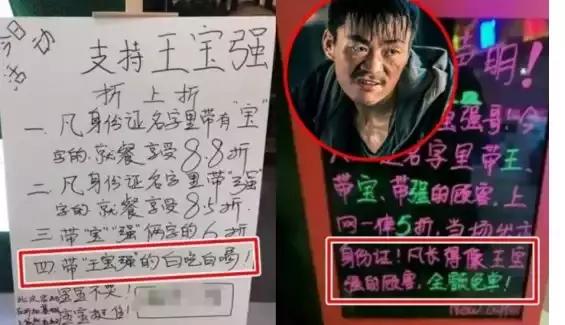 支持王宝强
折上折
一、凡身份证名字里带有"宝"
字的,就餐享受8.8折
二、凡身份证名字里带"强"
字的就餐享受8.5折
三、带"宝""强"俩字的6折
四、带"王宝强"的白吃白喝!
宝宝不哭!
声明!
宝强哥!今
名字里带王、
带宝、带强的顾客,上
网一律5折,当场出示
身份证!凡长得像王宝
强的顾客,全额免单!